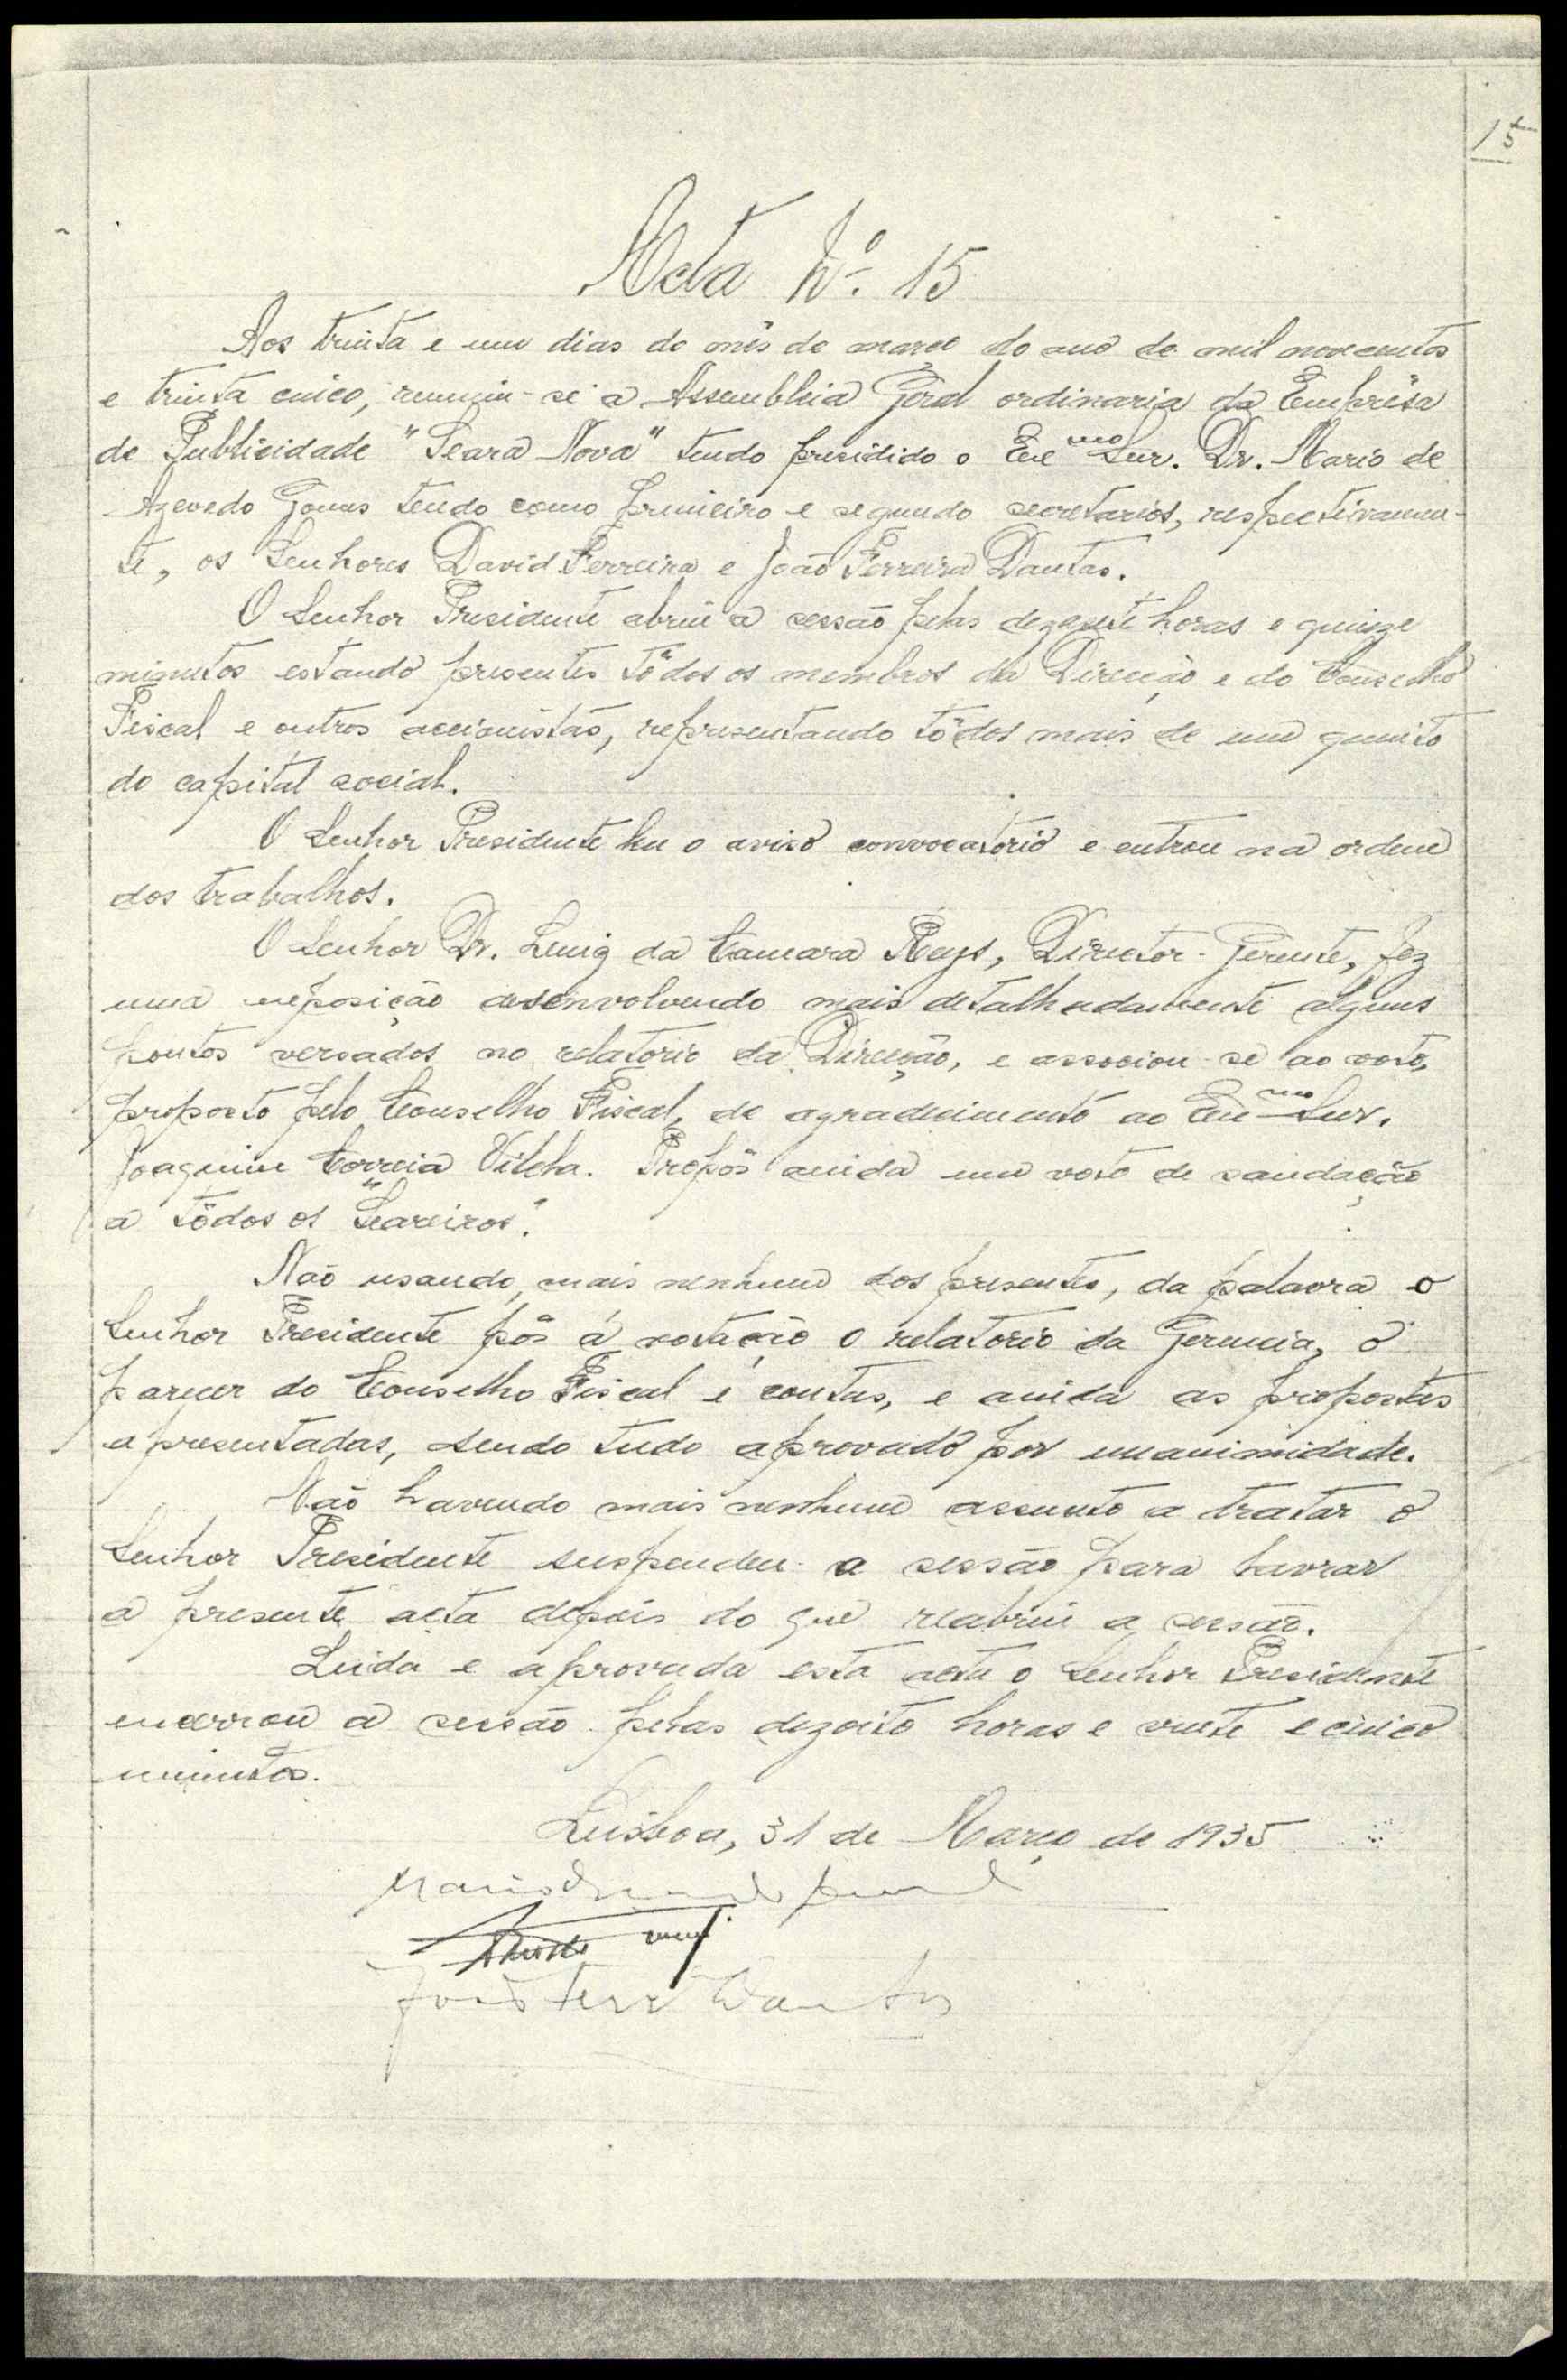 15
Acta Nº. 15
Aos trinta e um dias do mês de março do ano de mil novecentos
e trinta cinco, reuniu-se a Assembleia Geral ordinaria da Emprêsa
de Publicidade "Seara Nova" tendo presidido o Exmo Snr. Dr. Mario de
Azevedo Gomes tendo como primeiro e segundo secretarios, respectivamen-
te, os Senhores David Ferreira e João Ferreira Dantas.
O Senhor Presidente abriu a sessão pelas dezasete horas e quinze
minutos estando presentes tôdos os membros da Direcção e do Conselho
Fiscal e outros accionistas, representando tôdos mais de um quinto
do capital social.
O Senhor Presidente leu o aviso convocatorio e entrou na ordem
dos trabalhos.
O Senhor Dr. Luiz da Camara Reys, Director-Gerente, fez
uma exposição desenvolvendo mais detalhadamente alguns
pontos versados no relatorio da Direcção, e associou-se ao voto,
proposto pelo Conselho Fiscal, de agradecimento ao Exmo Snr.
Joaquim Correia Vilela. Propôs ainda um voto de saudação
a tôdos os "Seareiros".
Não usando, mais nenhum dos presentes, da palavra o
Senhor Presidente pôs á votação o relatorio da Gerencia, o
parecer do Conselho Fiscal e contas, e ainda as propostas
apresentadas, sendo tudo aprovado por unanimidade.
Não havendo mais nenhum assunto a tratar o
Senhor Presidente suspendeu a sessão para lavrar
a presente acta depois do que reabriu a sessão.
Lida e aprovada esta acta o Senhor Presidente
encerrou a sessão pelas dezoito horas e vinte e cinco
minutos.
Lisboa, 31 de Março de 1935
João Ferr Dantas